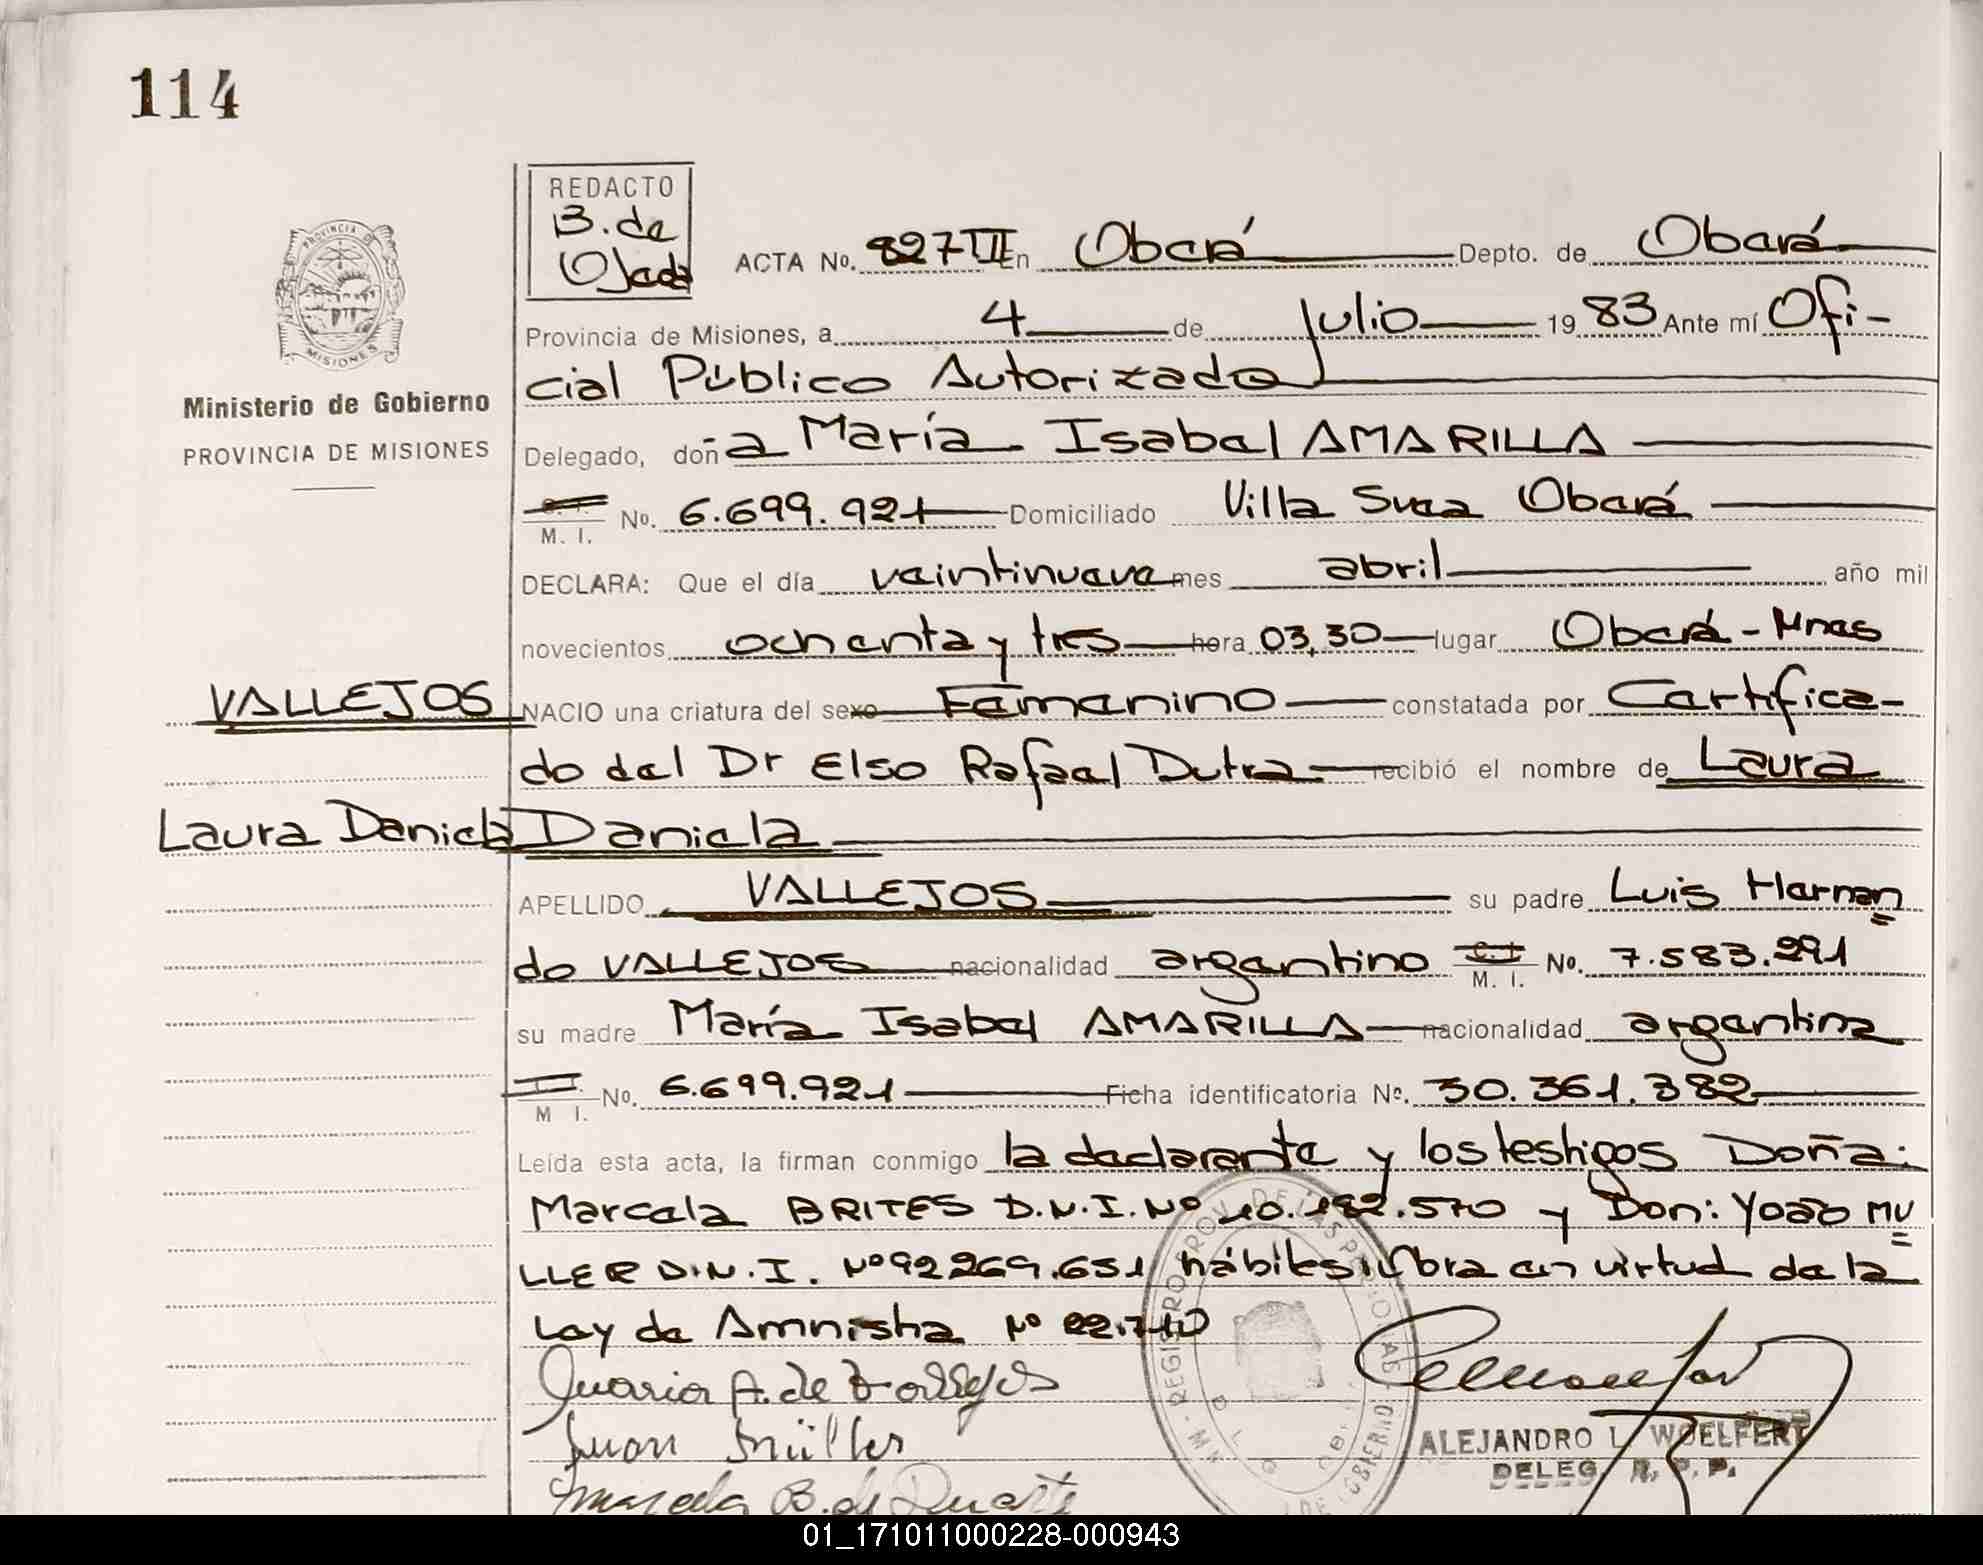 114
REDACTO
B. de
Ojeda
ACTA No. 827 VII En Oberá Depto. de Oberá
Provincia de Misiones, a 4 de julio 19 83 Ante mí Ofi-
cial Público Autorizado
PROVINCIA DE
MISIONES
Ministerio de Gobierno
PROVINCIA DE MISIONES
Delegado, doña María Isabel AMARILLA
M. I. No. 6.699.921 Domiciliado Villa Svea Oberá
DECLARA: Que el día veintinueve mes abril año mil
novecientos ochenta y tres hora 03,30 lugar Oberá - Mnes
VALLEJOS
NACIO una criatura del sexo Femenino constatada por Certifica-
do del Dr Elso Rafael Dutra recibió el nombre de Laura
Laura Daniela
Daniela
APELLIDO VALLEJOS su padre Luis Hernan
do VALLEJOS nacionalidad argentino C.I. M. I. No. 7.583.291
su madre María Isabel AMARILLA nacionalidad argentina
M I. No. 6.699.921 Ficha identificatoria No. 30.361.382
Leída esta acta, la firman conmigo la declarante y los testigos Doña:
Marcela BRITES D.N.I. Nº 10.192.570 y Don: Yoao MU
LLER D.N.I. Nº 92269.651 hábiles. Obra en virtud de la
Ley de Amnistia Nº 22.710
Maria A. de Vallejos
Juan Müller
Marcela B. de Duarte
ALEJANDRO L. WOELFERT
DELEG. R. P. P.
01_171011000228-000943